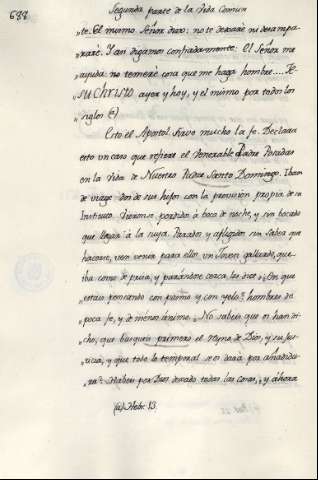 688
Segunda parte de la Vida Comun
"te. El mismo Señor dixo: no te dexaré, ni desampa-
"raré. Y asi digamos confiadamente: El Señor me
"ayuda: no temeré cosa que me haga hombre.... JE-
"SUCHRISTO ayer y hoy, y el mismo por todos los
"siglos (a)
Esto el Apostol. Aviva mucho la fe. Declara
esto un caso que refiere el Venerable Padre Posadas
en la Vida de Nuestro Padre Santo Domingo. Iban
de viage dos de sus hijos con la provision propia de su
Instituto. Vieronse perdidos à boca de noche, y sin bocado
que llegar à la suya. Parados y afligidos sin saber que
hacerse, ven venir para ellos un Joven gallardo, que
iba como de prisa, y parandose cerca, les dice: ¿En que
estais pensando con pasmo y con yelo? hombres de
poca fe, y de menos ánimo. ¿No sabeis que os han di-
cho, que busqueis primero el Reyno de Dios, y su jus-
ticia, y que todo lo temporal se os daria por añadidu-
ra? Habeis por Dios dexado todas las cosas, ¿y ahora
(a) Hebr. 13.